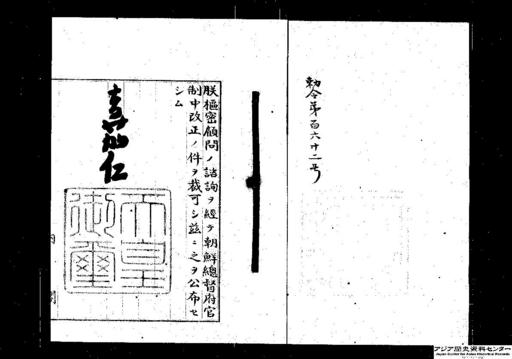 勅令第百六十二号
朕枢密顧問ノ諮詢ヲ経テ朝鮮總督府官
制中改正ノ件ヲ裁可シ茲ニ之ヲ公布セ
シム
嘉仁
天皇
御璽
アジア歴史資料センター
Japan Center for Asian Historical Records